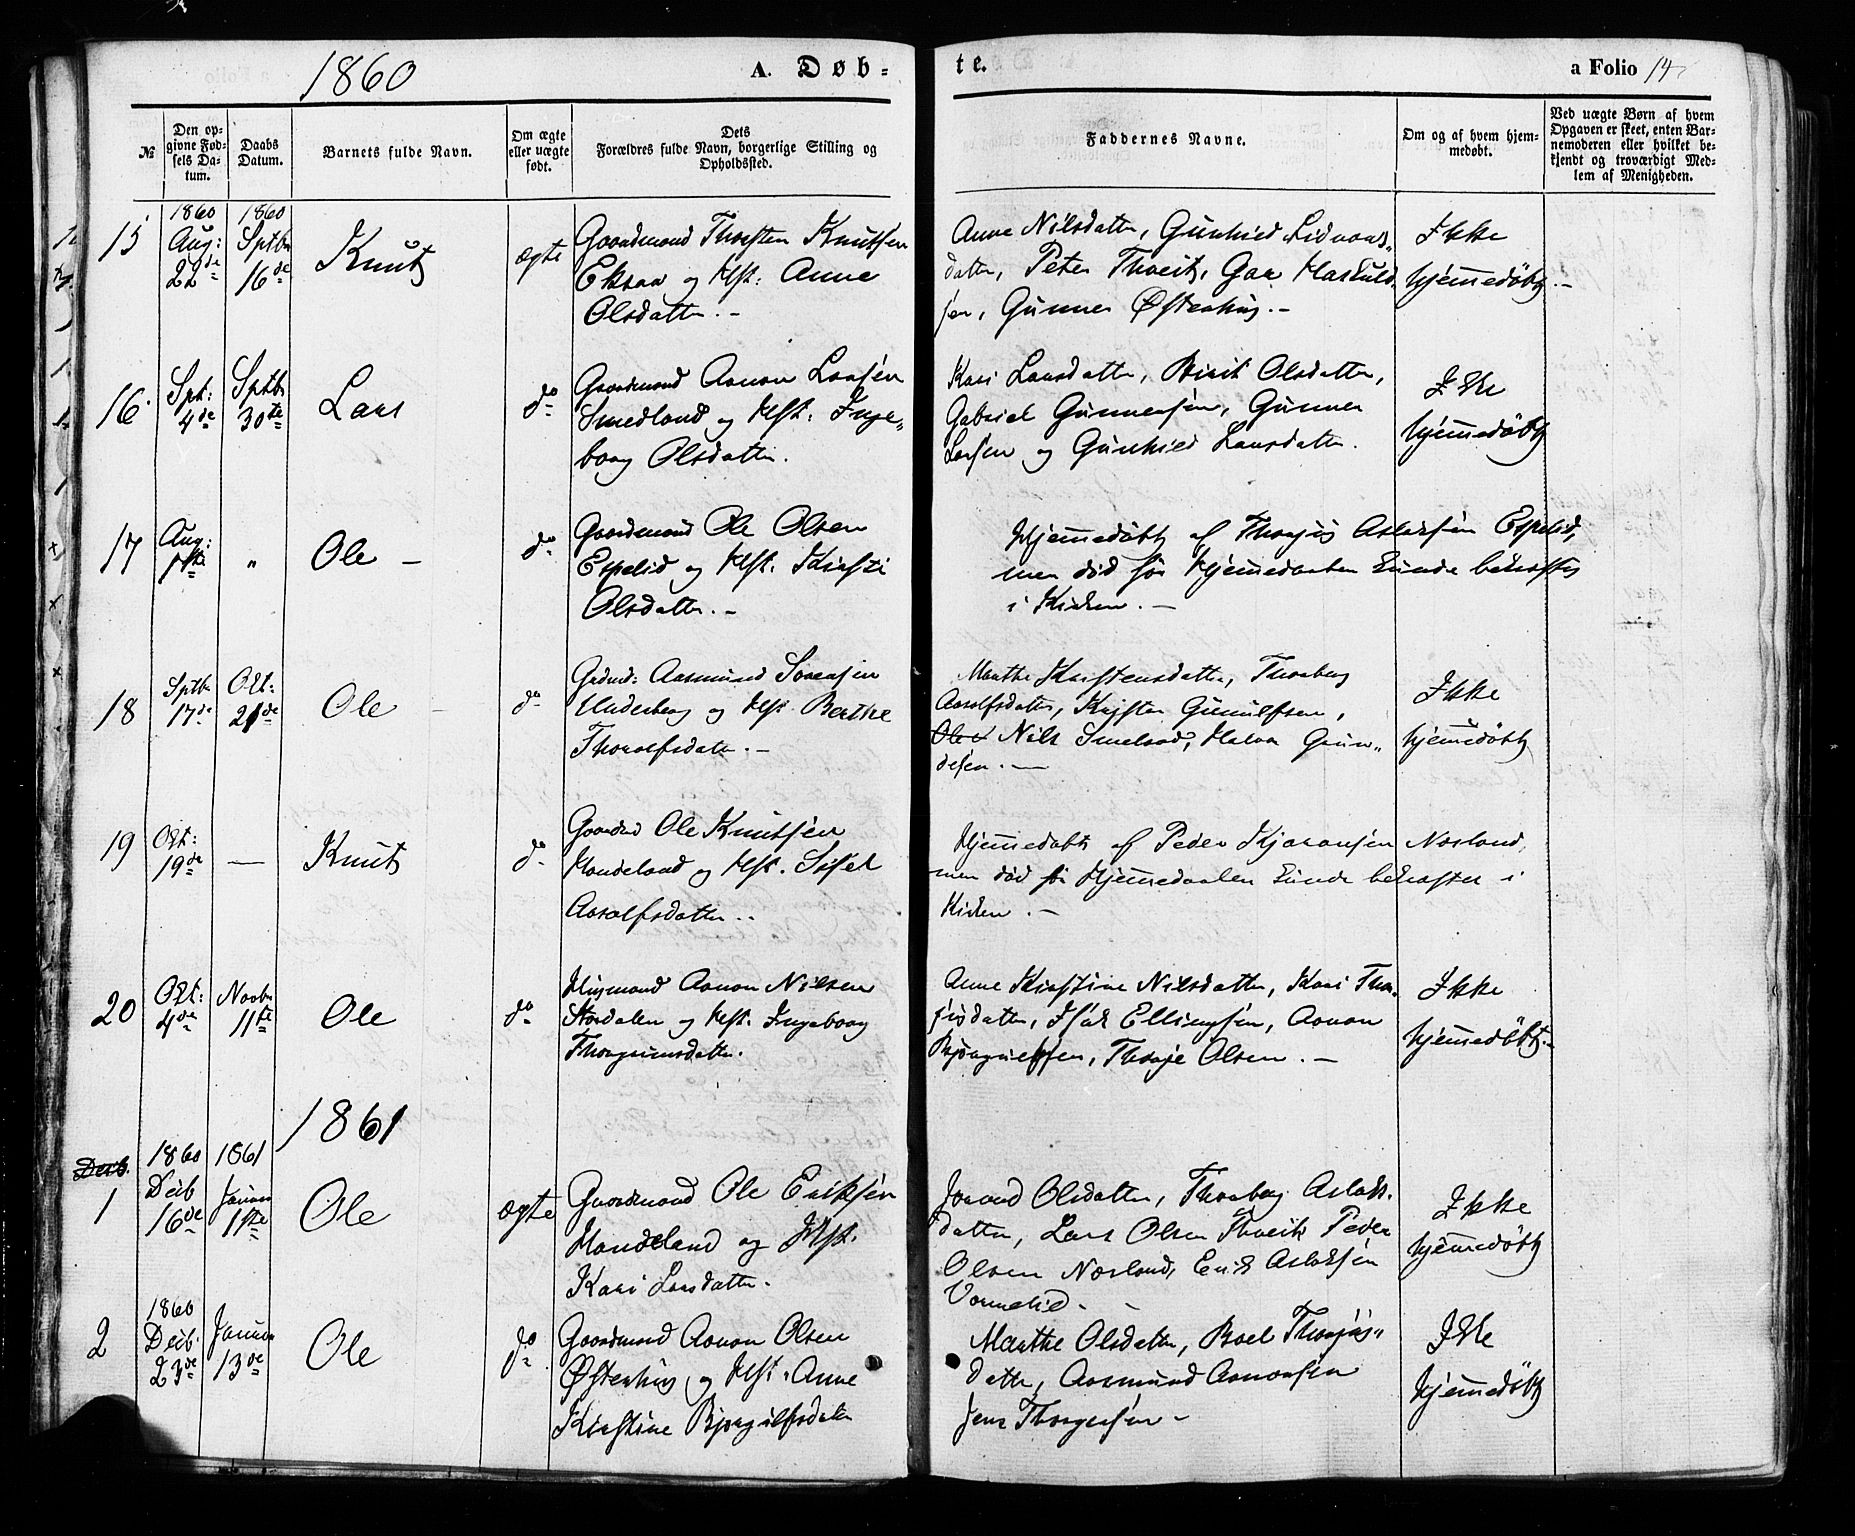 1860
A. Døb-
te.
a Folio 14
№
Den op-
givne Fød-
sels Da-
tum.
Daabs
Datum.
Barnets fulde Navn.
Om ægte
eller uægte
født.
Dets
Forældres fulde Navn, borgerlige Stilling og
Opholdssted.
Faddernes Navne.
Om og af hvem hjem-
medøbt.
Ved uægte Børn af hvem
Opgaven er skeet, enten Bar-
nemoderen eller hvilket be-
kjendt og troværdigt Med-
lem af Menigheden.
15
1860
Aug:
22de
1860
Sptbr
16de
Knut
ægte
Gaardmand Thorsten Knutsen
Eksaa og Hst: Anne
Olsdatter. –
Anne Nilsdatter, Gunhild Lidvars-
datter, Peter Thveit, Gar Haskuld
sen, Gunner Østenhuug. –
Ikke
hjemmedøbt. –
16.
Spt:
4de
Sptbr
30te
Lars
do
Gaardmand Aanon Larsen
Smedland og Hst: Inge-
borg Olsdatter.
Kari Larsdatter, Birit Olsdatter,
Gabriel Gunnersen, Gunner
Larsen og Gunhild Larsdatter.
Ikke
hjemmedøbt
17
Aug:
1ste
"
Ole –
do
Gaardmand Ole Olsen
Espelid og Hst. Kirsti
Olsdatter. –
Hjemmedøbt af Thorjus Aslaksen Espelid,
men død før Hjemmedaaben kunde bekræftes
i Kirken. –
18
Sptbr
17de
Okt:
21de
Ole
do
Grdmd: Aasmund Sørensen
Underberg og Hst Berthe
Thorolfsdatr. –
Marthe Kristensdatter, Thorborg
Aasolfsdatter, Kristen Gunulfsen,
Nils Smelsad, Halvor Gun-
desen. –
Ikke
hjemmedøbt
19
Okt:
19de
—
Knut
do
Gaardmd Ole Knutsen
Handeland og Hst. Sissel
Aasolfsdatter. .
Hjemmedøbt af Peder Kjøransen Norland,
men død før Hjemmedaaben kunde bekræftes i
Kirken. –
20
Okt:
4de
Novbr
11te
Ole
do
Husmand Aanon Nilsen
Stordalen og Hst. Ingeborg
Thorgrimsdatter.
Anne Kirstine Nilsdatter, Kari Thor-
jusdatter, Isak Ellingsen, Aanon
Bjørgulfsen, Thorje Olsen. –
Ikke
hjemmedøbt. –
1861
Decb.
1
1860
Decb
16de
1861
Januar
1ste
Ole
ægte
Gaardmand Ole Eriksen
Handeland og Hst.
Kari Larsdatter.
Joraand Olsdatter, Thorborg Aslaks-
datter, Lars Olsen Thveit, Peder
Olsen Norland, Erik Aslaksen
Vormelid. –
Ikke
hjemmedøbt
2
1860
Decb.
23de
Januar
13de
Ole
do
Gaardmand Aanon Olsen
Østenhuug og Hst. Anne
Kirstine Bjorgulfsdatr
Marthe Olsdatter, Boel Thorjus-
datter, Aasmund Aanonsen
Jens Thorgersen –
Ikke
hjemmedøbt